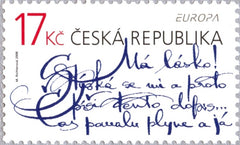 EUROPA
17 Kč ČESKÁ REPUBLIKA
Má lásko!
se mi a proto
píši tento dopis...
čas pomalu plyne a já